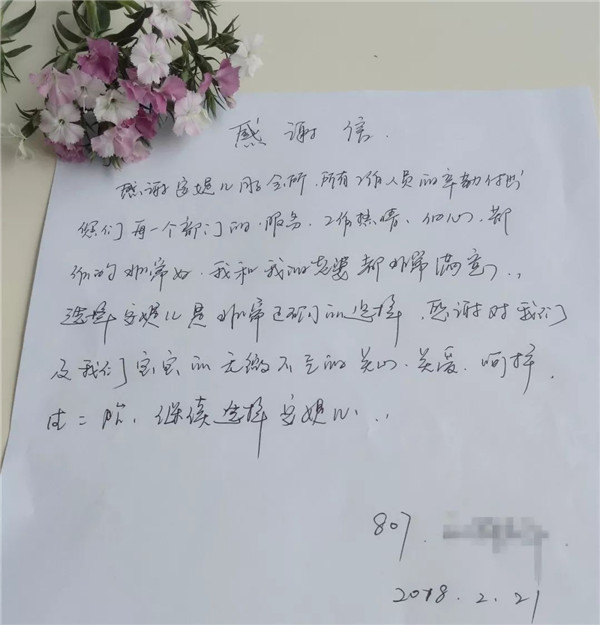 感谢信
感谢安媞儿月子会所，所有工作人员的辛勤付出
你们每一个部门的服务，工作热情、细心，都
做的非常好，我和我的老婆都非常满意，
选择安媞儿是非常正确的选择，感谢对我们
及我们宝宝的无微不至的关心、关爱、呵护，
生二胎，继续选择安媞儿，
807.
2018.2.21